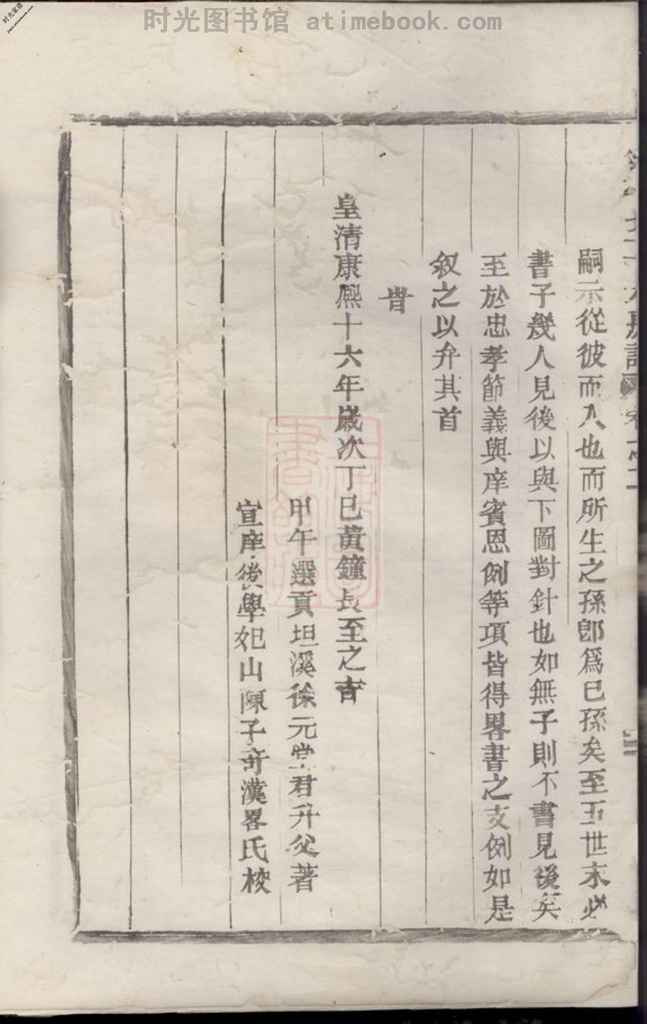 时光图书馆 atimebook.com
嗣示從彼而入也而所生之孫卽爲巳孫矣至五世末必
書子幾人見後以與下圖對針也如無子則不書見後矣
至於忠孝節義與庠賓恩例等項皆得畧書之支例如是
叙之以弁其首
旹
皇清康熙十六年歲次丁巳黃鐘長至之吉
甲午選貢坦溪徐元堂君升父著
宣庠後學妃山陳子奇漢畧氏校